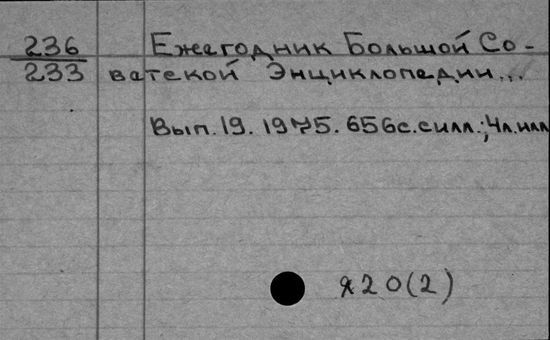 236 Ежегодник Большой Со-
233 ветской Энциклопедии...
Вып. 19. 1975. 656с. с илл.; 4л. илл
Я20(2)